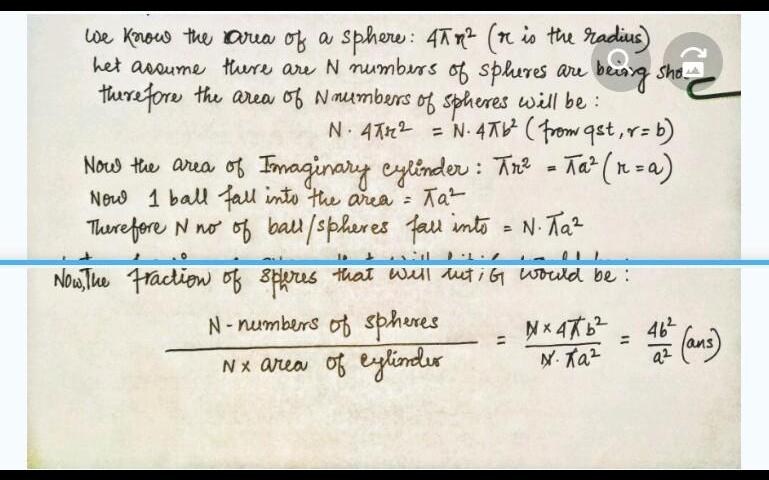 We know the area of a sphere: 4πr² (r is the radius)
Let assume there are N numbers of spheres are being sho
therefore the area of N numbers of spheres will be :
N. 4πr² = N. 4πb² (from qst, r = b)
Now the area of Imaginary cylinder : πr² = πa² (r = a)
Now 1 ball fall into the area = πa²
Therefore N no of ball/spheres fall into = N. πa²
Now, The fraction of spheres that will hit; G would be :
N - numbers of spheres / N x area of cylinder = N x 4πb² / N. πa² = 4b² / a² (ans)